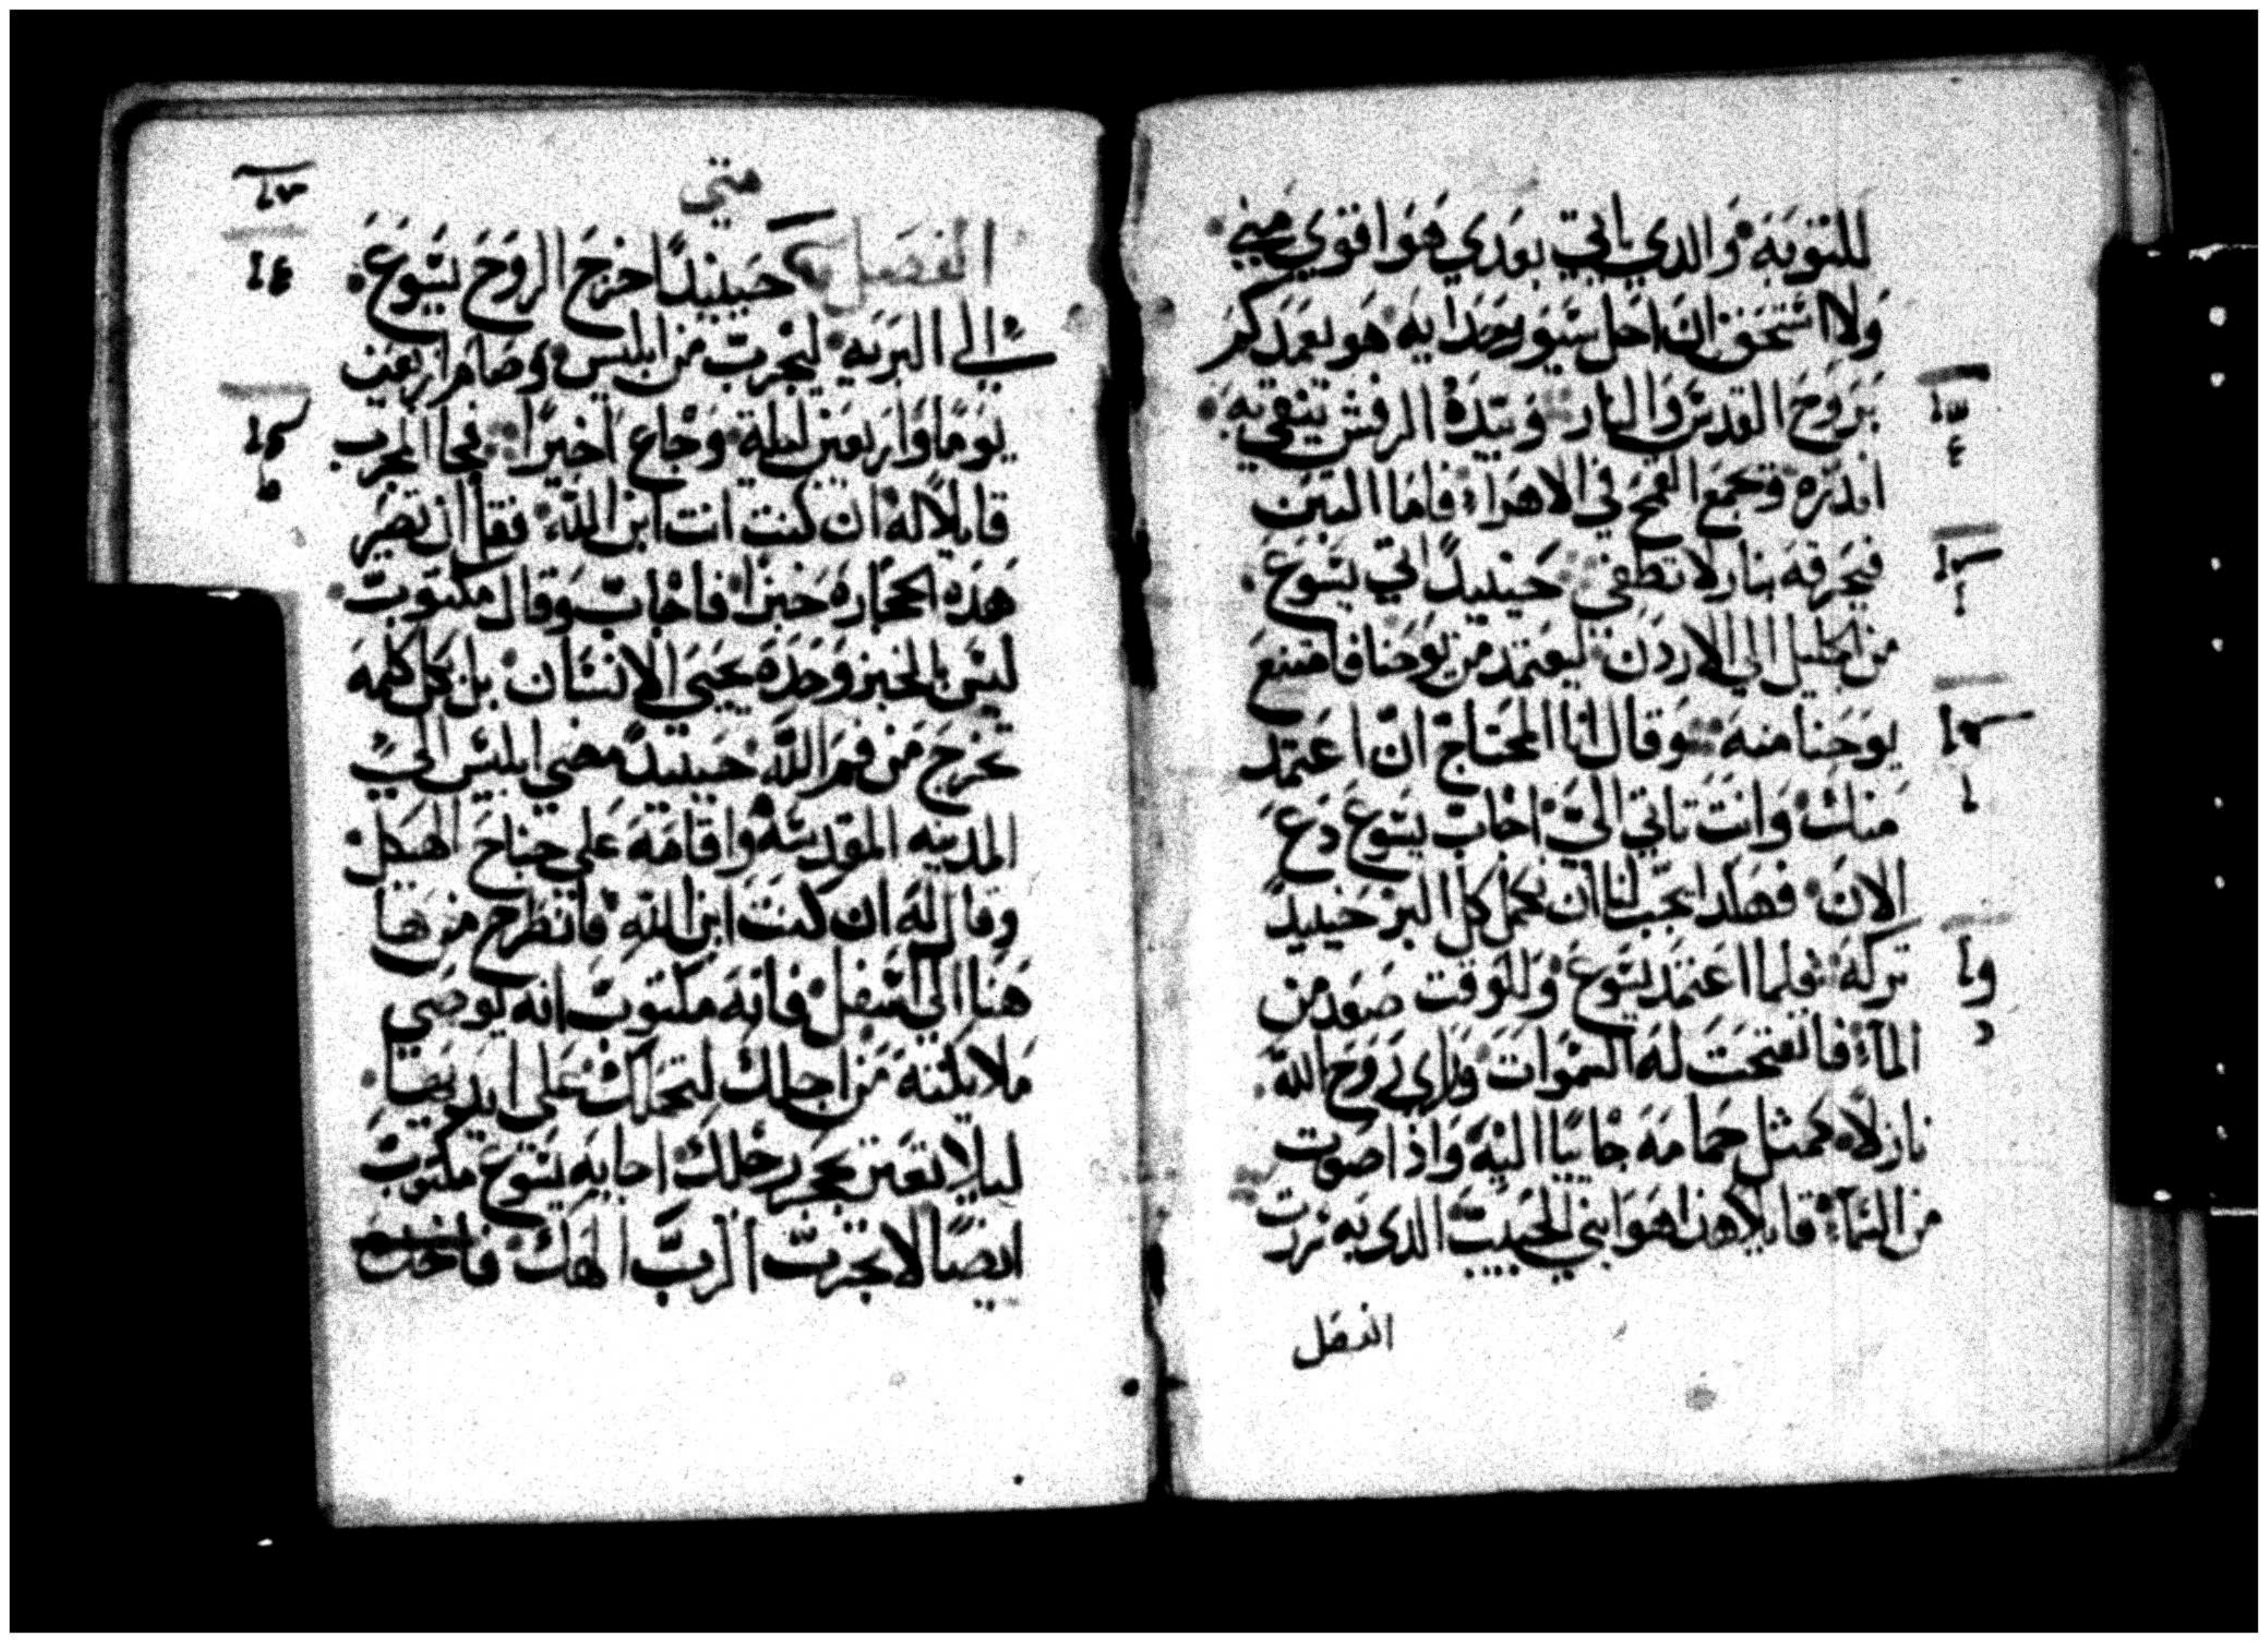 للتوبه والدي ياتي بعدي هو اقوي مني
ولا استحق ان احل سيور حدايه هو يعمدكم
بروح القدس والنار وبيده الرفش ينقي به
اندره وتجمع القمح في الاهراء فاما التبن
فيحرقه بنار لا تطفي حينيدًا اتي يسوع
من الجليل الي الاردن ليعتمد من يوحنا فامتنع
يوحنا منه وقال انا المحتاج ان اعتمد
منك وانت تاتي الي اجاب يسوع دع
الان فهكدا يجب لنا ان نكمل كل البر حينيدً
تركه فلما اعتمد يسوع وللوقت صعد من
الماء فانفتحت له السموات وراي روح الله
نازلًا كمثل حمامه جاييًا اليه واذا صوت
من السماء قايلًا هذا هو ابني الحبيب الدي به سررت
الفصل
متي
الفصل حينيدًا اخرج الروح يسوع
الي البريه ليجرب من ابليس وصام اربعين
يومًا واربعين ليلة وجاع اخيرًا فجا المجرب
قايلًا له ان كنت انت ابن الله فقل ان تصير
هده الحجاره خبزًا فاجاب وقال مكتوب
ليس بالخبز وحده يحيي الانسان بل بكل كلمه
تخرج من فم الله حينيدً مضي ابليس الي
المدينه المقدسه واقامه علي جناح الهيكل
وقال له ان كنت ابن الله فانطرح من ها
هنا الي اسفل فانه مكتوب انه يوصي
ملايكته من اجلك لتحملك علي ايديها
ليلا تعتر بحجر رجلك اجابه يسوع مكتوب
ايضًا لا تجرب الرب الهك